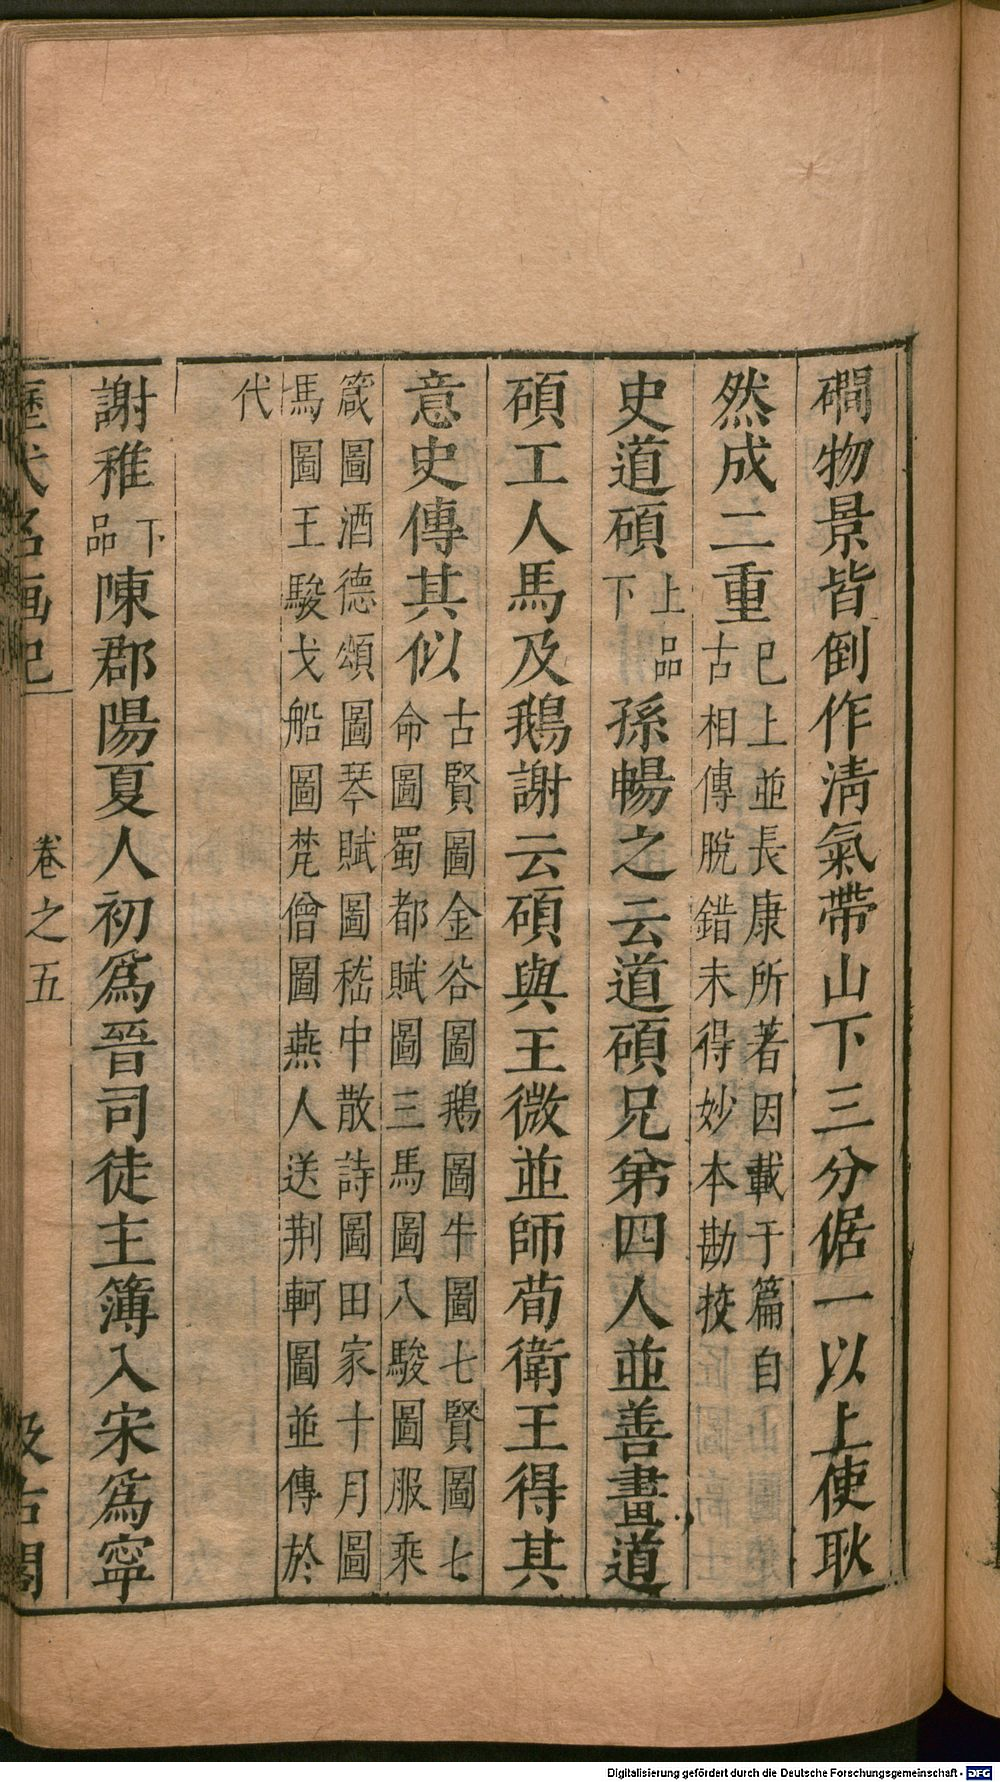 磵物景皆倒作淸氣帶山下三分倨一以上使耿
然成二重已上並長康所著因載于篇自
古相傳脫錯未得妙本勘挍
史道碩上品
下孫暢之云道碩兄弟四人並善畫道
碩工人馬及鵝謝云碩與王微並師荀衛王得其
意史傳其似古賢圖金谷圖鵝圖牛圖七賢圖七
命圖蜀都賦圖三馬圖八駿圖服乘
箴圖酒德頌圖琴賦圖嵇中散詩圖田家十月圖
馬圖王駿戈船圖梵僧圖燕人送荆軻圖並傳於
代
謝稚下
品陳郡陽夏人初爲晉司徒主簿入宋爲寧
歷代名画记
卷之五
汲古閣
Digitalisierung gefördert durch die Deutsche Forschungsgemeinschaft - DFG